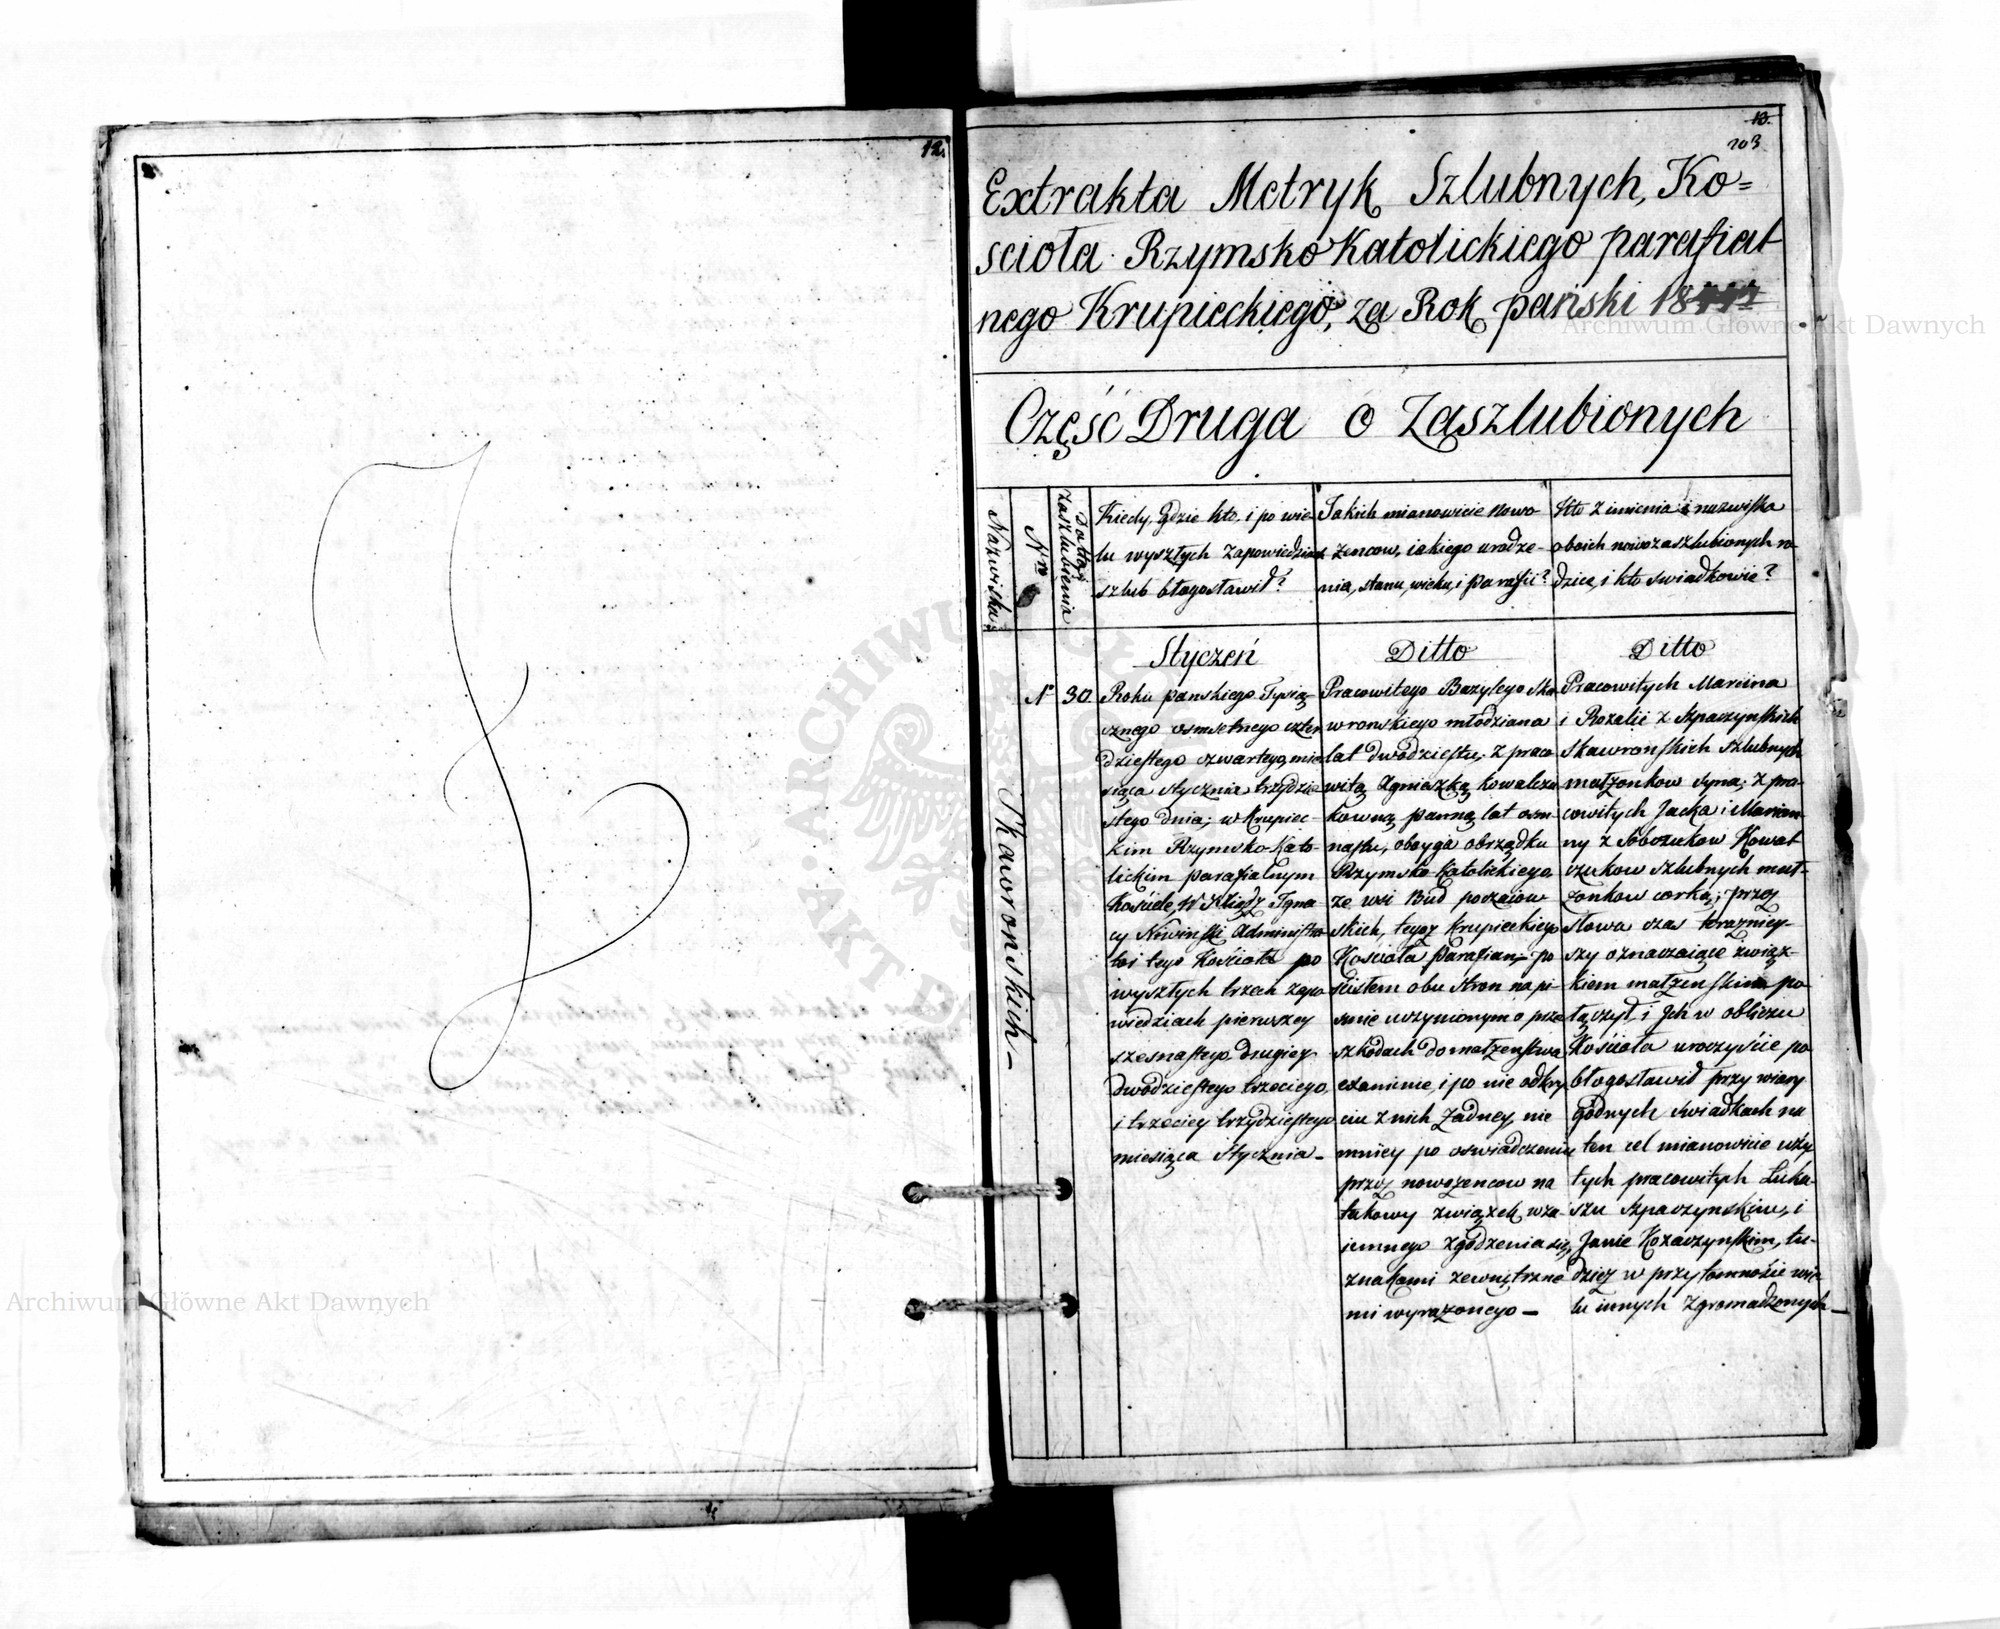 12.
13.
203
Extrakta Metryk Szlubnych, Ko=
sciola Rzymsko Katolickiego parafial
nego Krupieckiego, za Rok pański 18
Część Druga o Zaszlubionych
Nazwiska
Nro
Datta
Zaszlubienia
Kiedy, Gdzie kto, i po wie
lu wyszłych zapowiedziach
szlub błogosławił?
Jakich mianowicie nowo
żencow, iakiego urodze-
nia, stanu, wieku, i parafii?
Kto z imienia i nazwiska
oboich nowozaszlubionych ro
dzice, i kto swiadkowie?
Skawronskich
Nº
30
Styczeń
Roku panskiego Tysią
cznego osmsetnego czter
dziestego czwartego, mie
siąca stycznia trzydzie
stego dnia; w Krupiec-
kim Rzymsko-Kato-
lickim parafialnym
Kosciele, W Xiądz Igna
cy Niwinski Administra
tor tego Kościoła po
wyszłych trzech zapo
wiedziach pierwszey
szesnastego drugiey
dwódziestego trzeciego,
i trzeciey trzydziestego
miesiąca Stycznia-
Ditto
Pracowitego Bazylego Ska
wronskiego młodziana
lat dwódziestu; z praco
witą Agnieszką Kowalczu
kowną panną lat osm-
nastu, oboyga obrządku
Rzymsko-Katolickiego
ze wsi Bud
skich, tegoż Krupieckiego
Kościoła Parafian, po
scistem obu stron na pi-
smie uczynionym o prze
szkodach do małżenstwa
examinie, i po nie odkry
ciu z nich żadney, nie
mniey po oswiadczeniu
przez nowożencow na
takowy związek wza-
iemnego zgodzenia się,
znakami zewnętrzne
mi wyrażonego-
Ditto
Pracowitych Marcina
i Rozalii z Szpaczynskich
Skawronskich szlubnych
małżonkow syna; z pra-
cowitych Jacka i Marian
ny z Sobczukow Kowal
czukow szlubnych mał-
żonkow corką; przez
słowa czas terazniey-
szy oznaczaiące związ-
kiem małżenskim po
łączył i Jch w obliczu
Kościoła uroczyście po
błogosławił przy wiary
godnych swiadkach na
ten cel mianowicie uży
tych pracowitych Łuka-
szu Szpaczynskim, i
Janie Kozaczynskim, tu-
dzież w przytomności wie
lu innych Zgromadzonych-
Archiwum Główne Akt Dawnych
Archiwum Główne Akt Dawnych